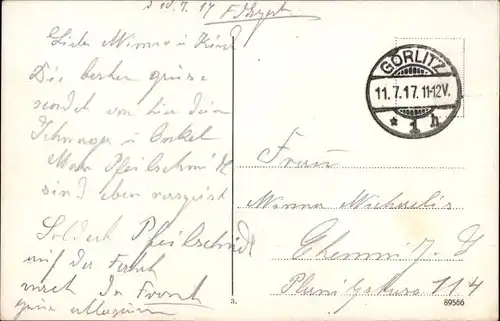 10.7.17
Liebe Minna u Kind
Die besten grüsse
sendet von hier dein
Schwager u Onkel
Max Pfeilschmidt
sind eben verreist
Soldat Pfeilschmidt
auf der Fahrt
nach der Front
GÖRLITZ
11.7.17. 11-12V.
* 1 h
Frau
Minna Michaelis
Chemnitz i. S
Planitzstrasse 114
3.
89566